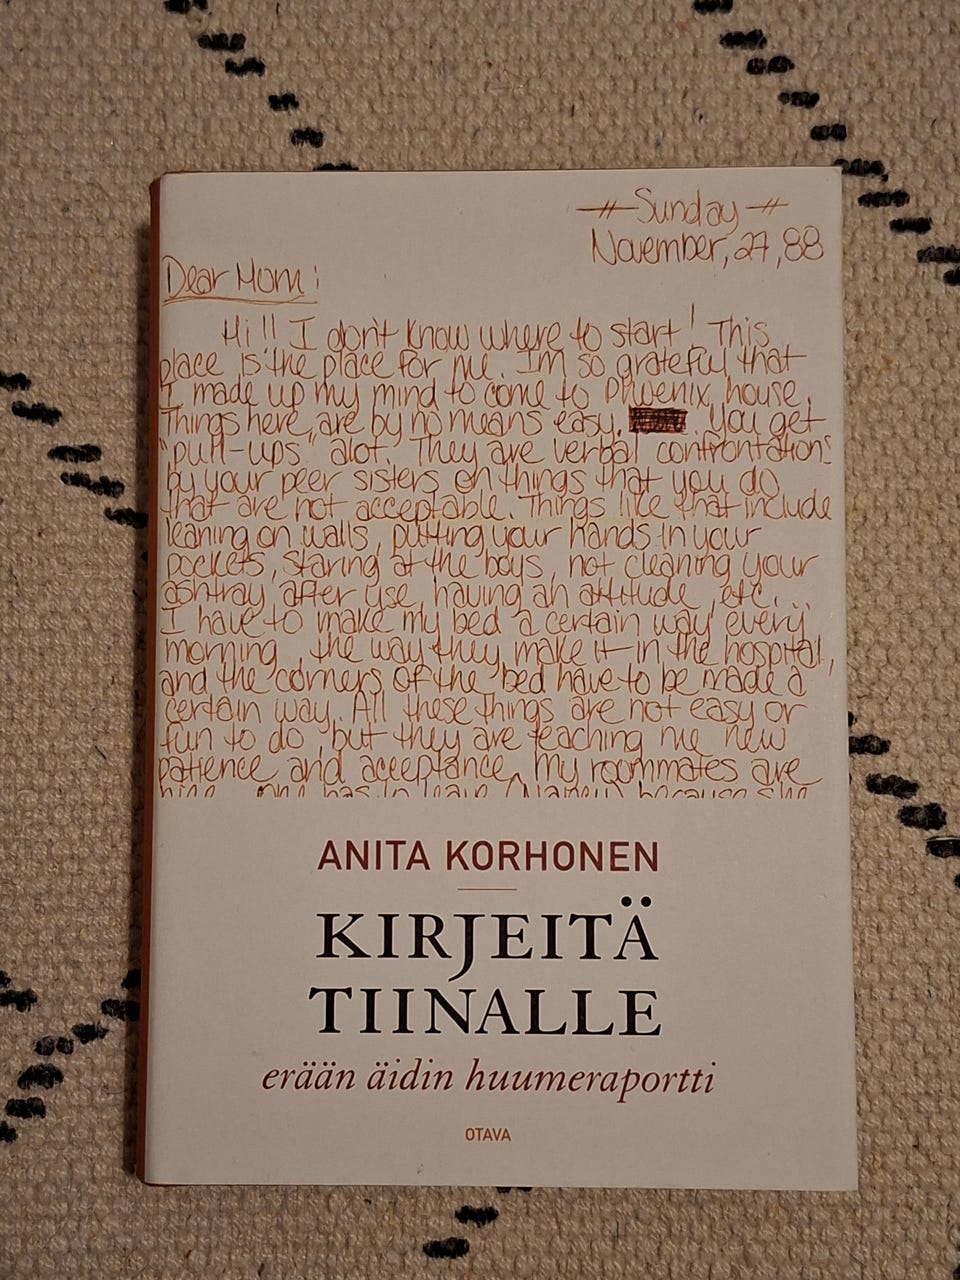 Sunday
November, 27, 88
Dear Mom:
Hi!! I don't know where to start! This
place is the place for me. I'm so grateful that
I made up my mind to come to Phoenix house.
Things here are by no means easy. You get
"pull-ups" alot. They are verbal confrontations
by your peer sisters on things that you do
that are not acceptable. Things like that include
leaning on walls, putting your hands in your
pockets, staring at the boys, not cleaning your
ashtray after use, having an attitude, etc...
I have to make my bed a certain way every
morning, the way they make it in the hospital,
and the corners of the bed have to be made a
certain way. All these things are not easy or
fun to do, but they are teaching me new
patience and acceptance. My roommates are
ANITA KORHONEN
KIRJEITÄ
TIINALLE
erään äidin huumeraportti
OTAVA